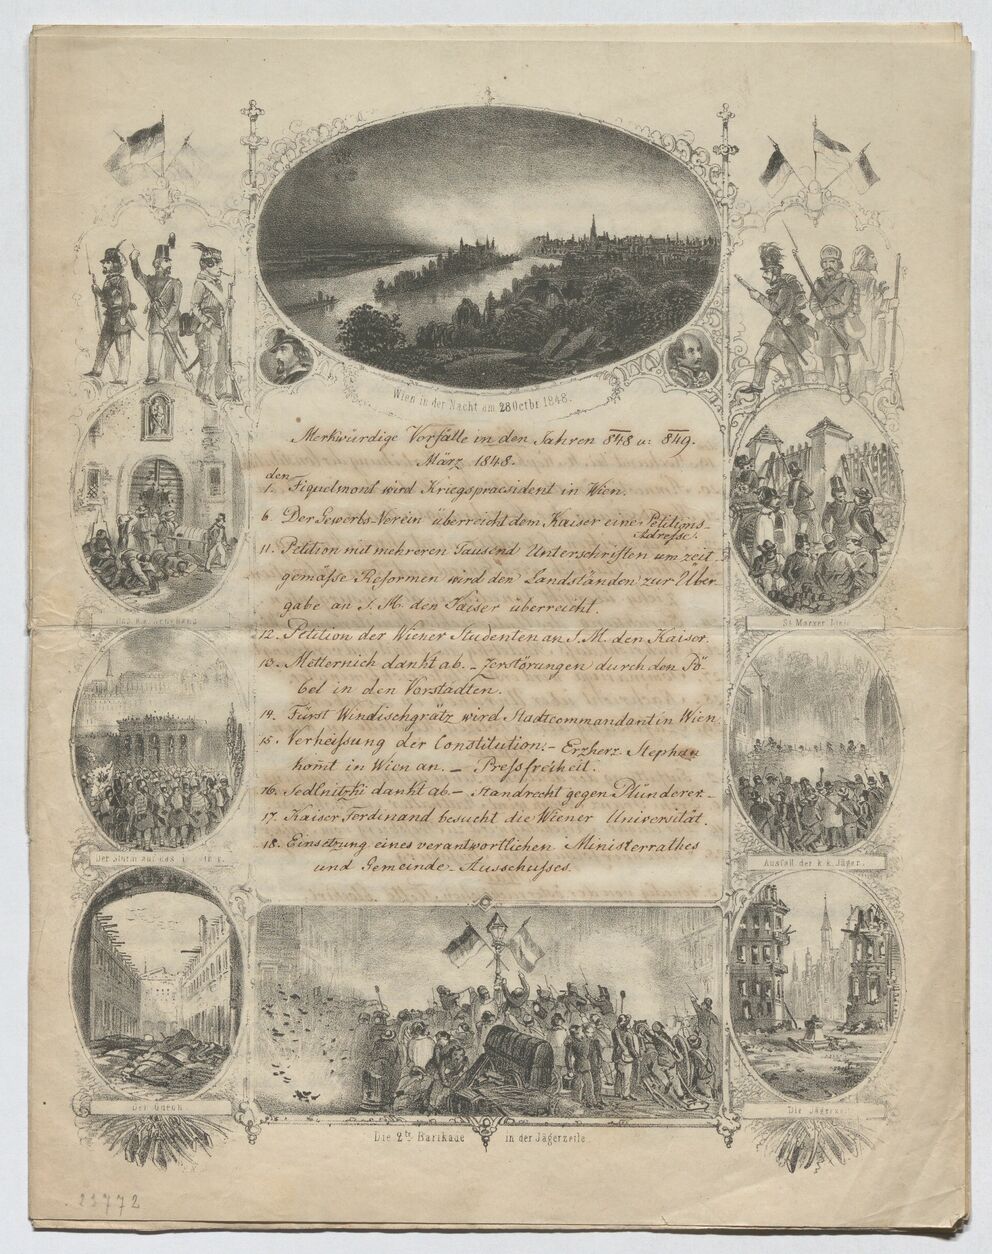 Wien in der Nacht am 28 Octbr 1848.
Merkwürdige Vorfälle in den Jahren 848 u: 849.
März 1848.
den
1. Fiquelmont wird Kriegspraesident in Wien.
6. Der Gewerbs-Verein überreicht dem Kaiser eine Petitions-
Adresse.
11. Petition mit mehreren Tausend Unterschriften um zeit-
gemäße Reformen wird den Landständen zur Über-
gabe an S. M. den Kaiser überreicht.
12. Petition der Wiener Studenten an S. M. den Kaiser.
13. Metternich dankt ab. – Zerstörungen durch den Pö-
bel in den Vorstädten.
14. Fürst Windischgrätz wird Stadtcommandant in Wien
15. Verheißung der Constitution. – Erzherz. Stephan
kom̄t in Wien an. – Pressfreiheit.
16. Sedlnitzki dankt ab – Standrecht gegen Plünderer. –
17. Kaiser Ferdinand besucht die Wiener Universität.
18. Einsetzung eines verantwortlichen Ministerrathes
und Gemeinde-Ausschußes.
St Marxer Linie
Der Sturm auf das
Ausfall der k. k. Jäger.
Die Jägerzeile
Die 2te Barikade in der Jägerzeile
23772